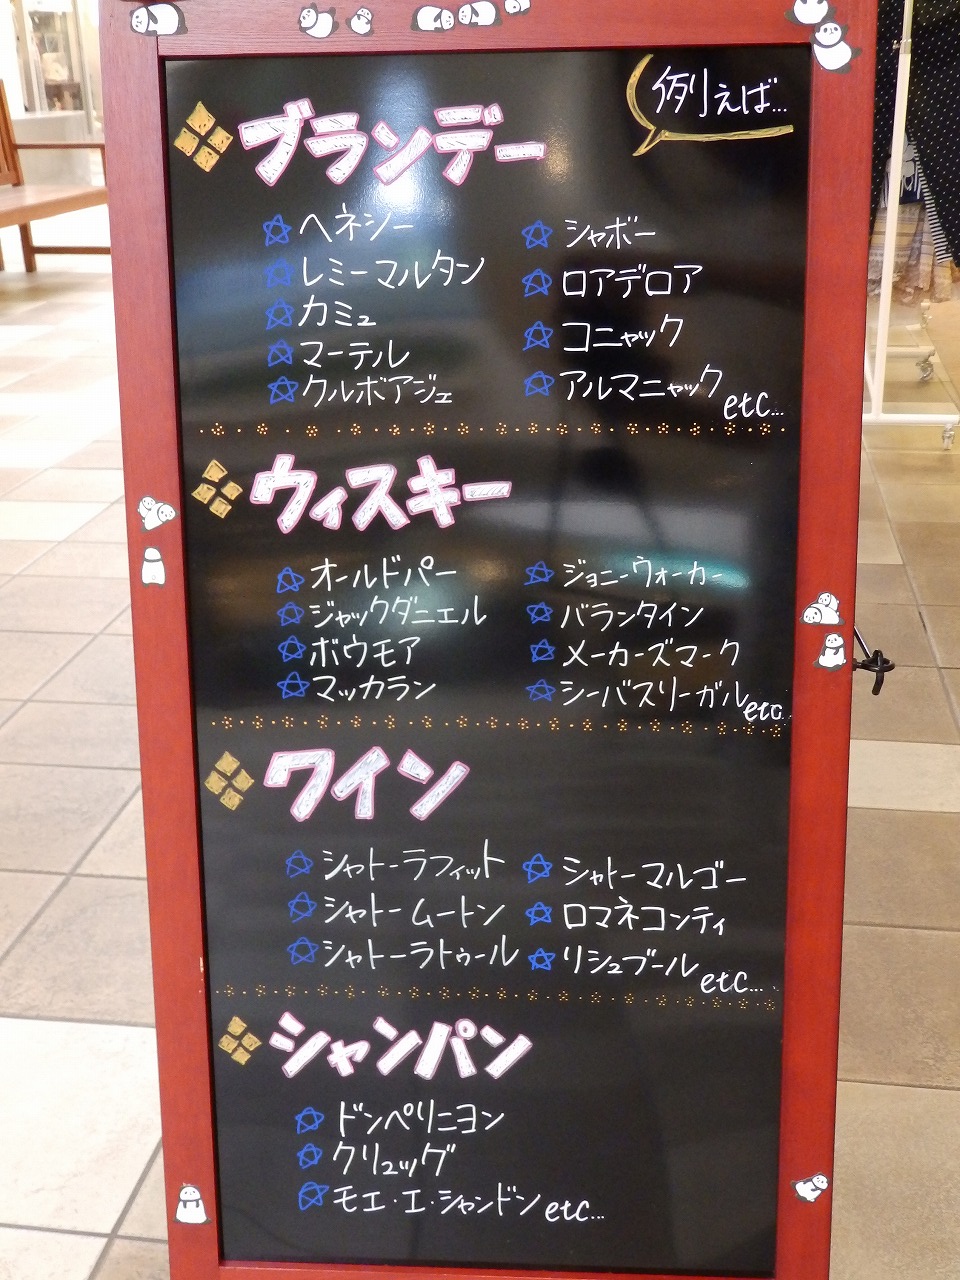 例えば...
ブランデー
ヘネシー
レミーマルタン
カミュ
マーテル
クルボアジェ
シャボー
ロアデロア
コニャック
アルマニャック etc...
ウィスキー
オールドパー
ジャックダニエル
ボウモア
マッカラン
ジョニーウォーカー
バランタイン
メーカーズマーク
シーバスリーガル etc.
ワイン
シャトーラフィット
シャトームートン
シャトーラトゥール
シャトーマルゴー
ロマネコンティ
リシュブール etc...
シャンパン
ドンペリニヨン
クリュッグ
モエ・エ・シャンドン etc...